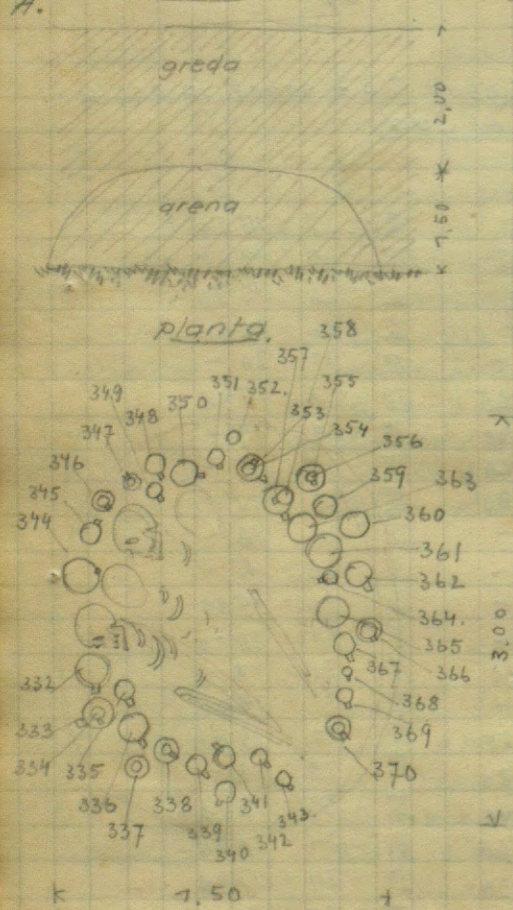 A.
greda
2,00
arena
1,50
planta.
358
357
351 352. 355
349 350 353
348 354
347 356
346 359 363
345 360
344 361
362
364.
365
3.00
367 366
332 368
333 369
334 335 370
336 338 341 343.
337 339 342
340
1.50